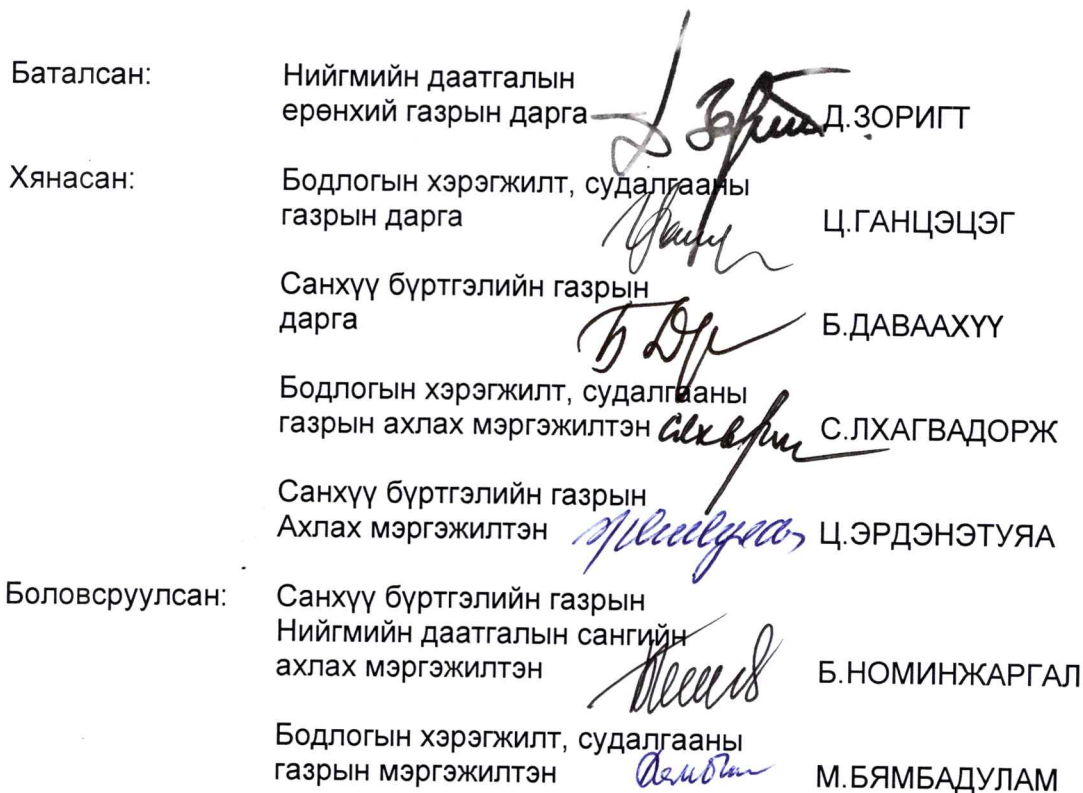 Баталсан: Нийгмийн даатгалын
ерөнхий газрын дарга Д.ЗОРИГТ
Хянасан: Бодлогын хэрэгжилт, судалгааны
газрын дарга Ц.ГАНЦЭЦЭГ
Санхүү бүртгэлийн газрын
дарга Б.ДАВААХҮҮ
Бодлогын хэрэгжилт, судалгааны
газрын ахлах мэргэжилтэн С.ЛХАГВАДОРЖ
Санхүү бүртгэлийн газрын
Ахлах мэргэжилтэн Ц.ЭРДЭНЭТУЯА
Боловсруулсан: Санхүү бүртгэлийн газрын
Нийгмийн даатгалын сангийн
ахлах мэргэжилтэн Б.НОМИНЖАРГАЛ
Бодлогын хэрэгжилт, судалгааны
газрын мэргэжилтэн М.БЯМБАДУЛАМ